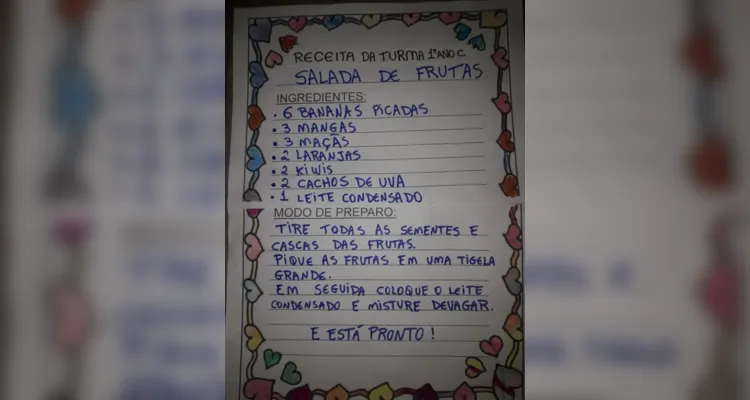 RECEITA DA TURMA 1º ANO C
SALADA DE FRUTAS
INGREDIENTES:
• 6 BANANAS PICADAS
• 3 MANGAS
• 3 MAÇÃS
• 2 LARANJAS
• 2 KIWIS
• 2 CACHOS DE UVA
• 1 LEITE CONDENSADO
MODO DE PREPARO:
TIRE TODAS AS SEMENTES E
CASCAS DAS FRUTAS.
PIQUE AS FRUTAS EM UMA TIGELA
GRANDE.
EM SEGUIDA COLOQUE O LEITE
CONDENSADO E MISTURE DEVAGAR.
E ESTÁ PRONTO!